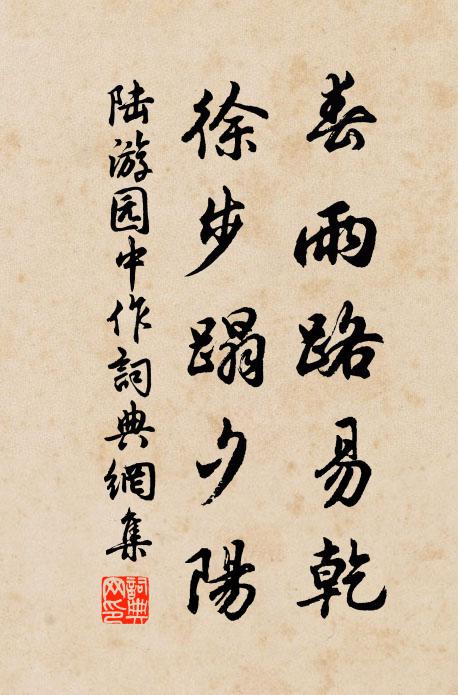 春雨路易乾
徐步蹋夕陽
陆游园中作詞典網集
詞典網印